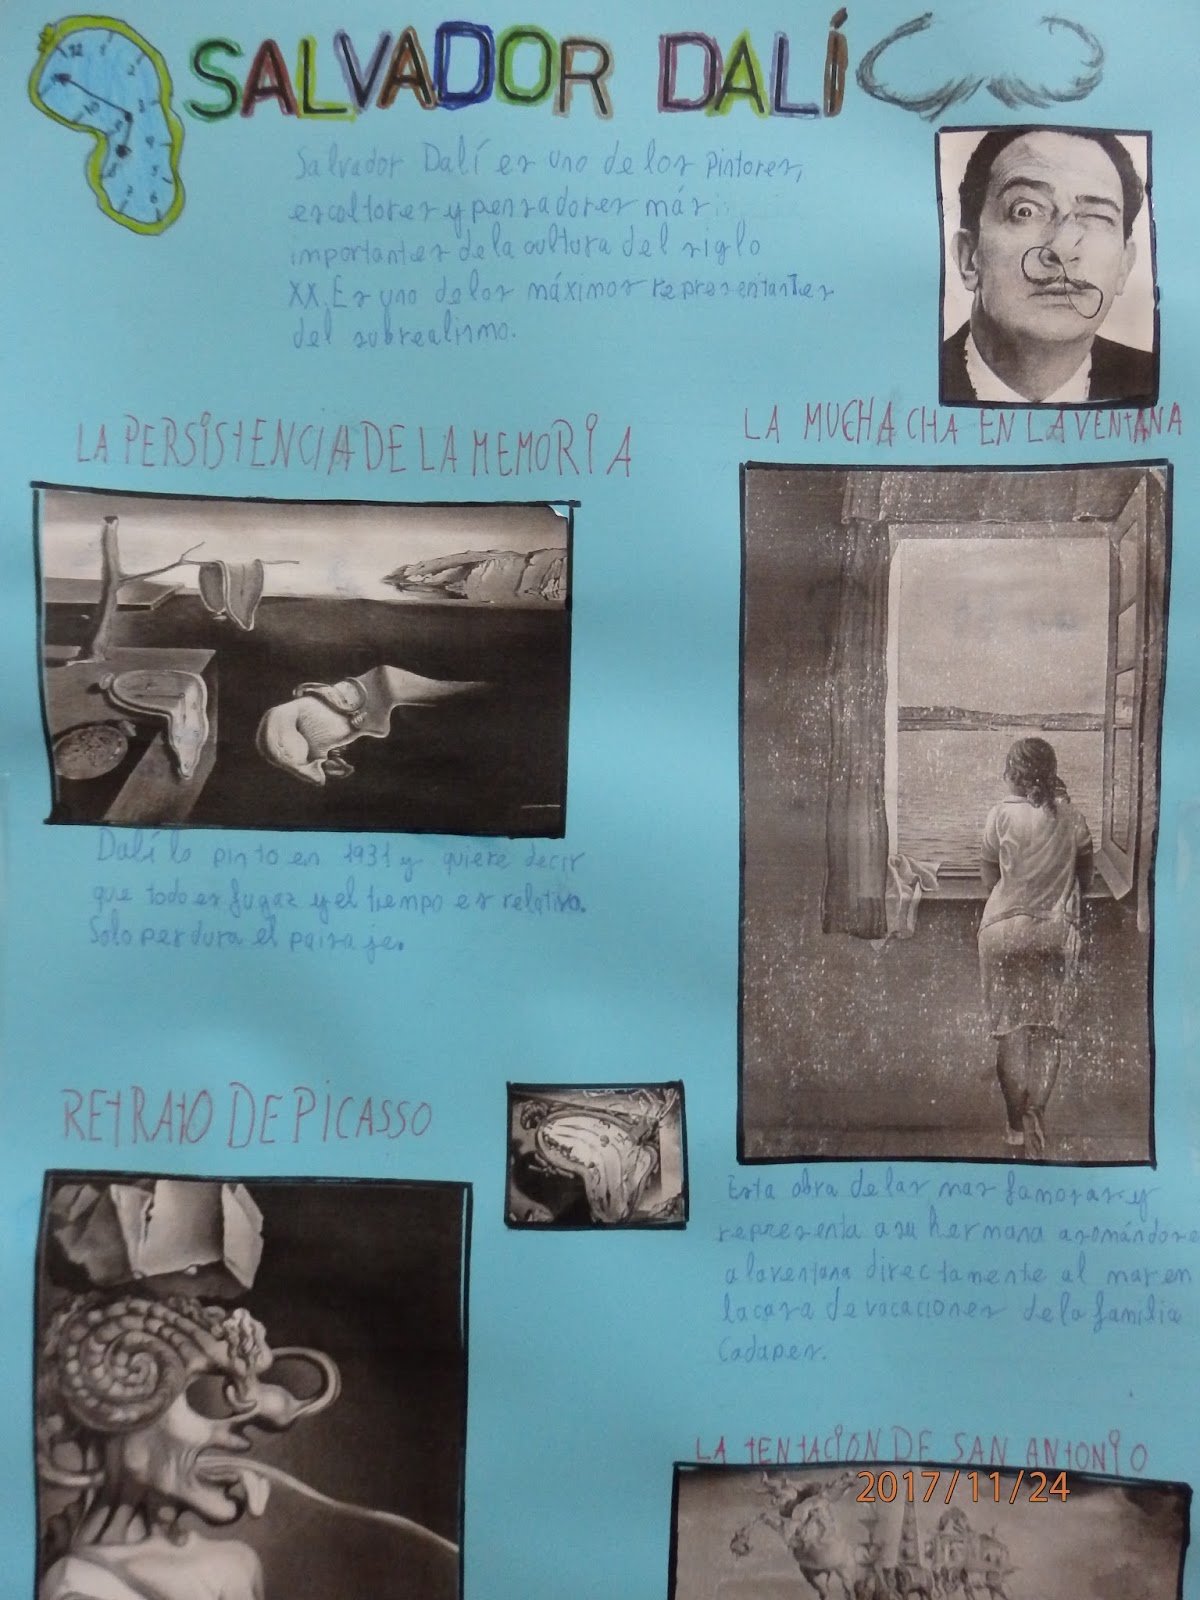 SALVADOR DALÍ
Salvador Dalí es uno de los pintores,
escultores y pensadores más
importantes de la cultura del siglo
XX. Es uno de los máximos representantes
del subrealismo.
LA PERSISTENCIA DE LA MEMORIA
Dalí lo pinto en 1931 y quiere decir
que todo es fugaz y el tiempo es relativo.
Solo perdura el paisaje.
LA MUCHACHA EN LA VENTANA
Esta obra de las mas famosas y
representa a su hermana asomándose
a la ventana directamente al mar en
la casa de vacaciones de la familia
Cadaques.
RETRATO DE PICASSO
LA TENTACION DE SAN ANTONIO
2017/11/24